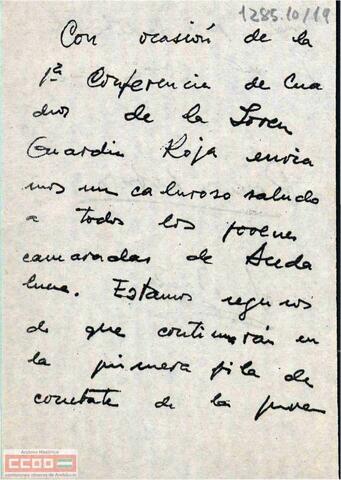 1285.10/19
Con ocasión de la
1ª Conferencia de Cua
dros de la Joven
Guardia Roja envia
mos un caluroso saludo
a todos los jovenes
camaradas de Anda
lucia. Estamos seguros
de que continuarán en
la primera fila de
combate de la juven
Archivo Histórico
CCOO
comisiones obreras de Andalucía